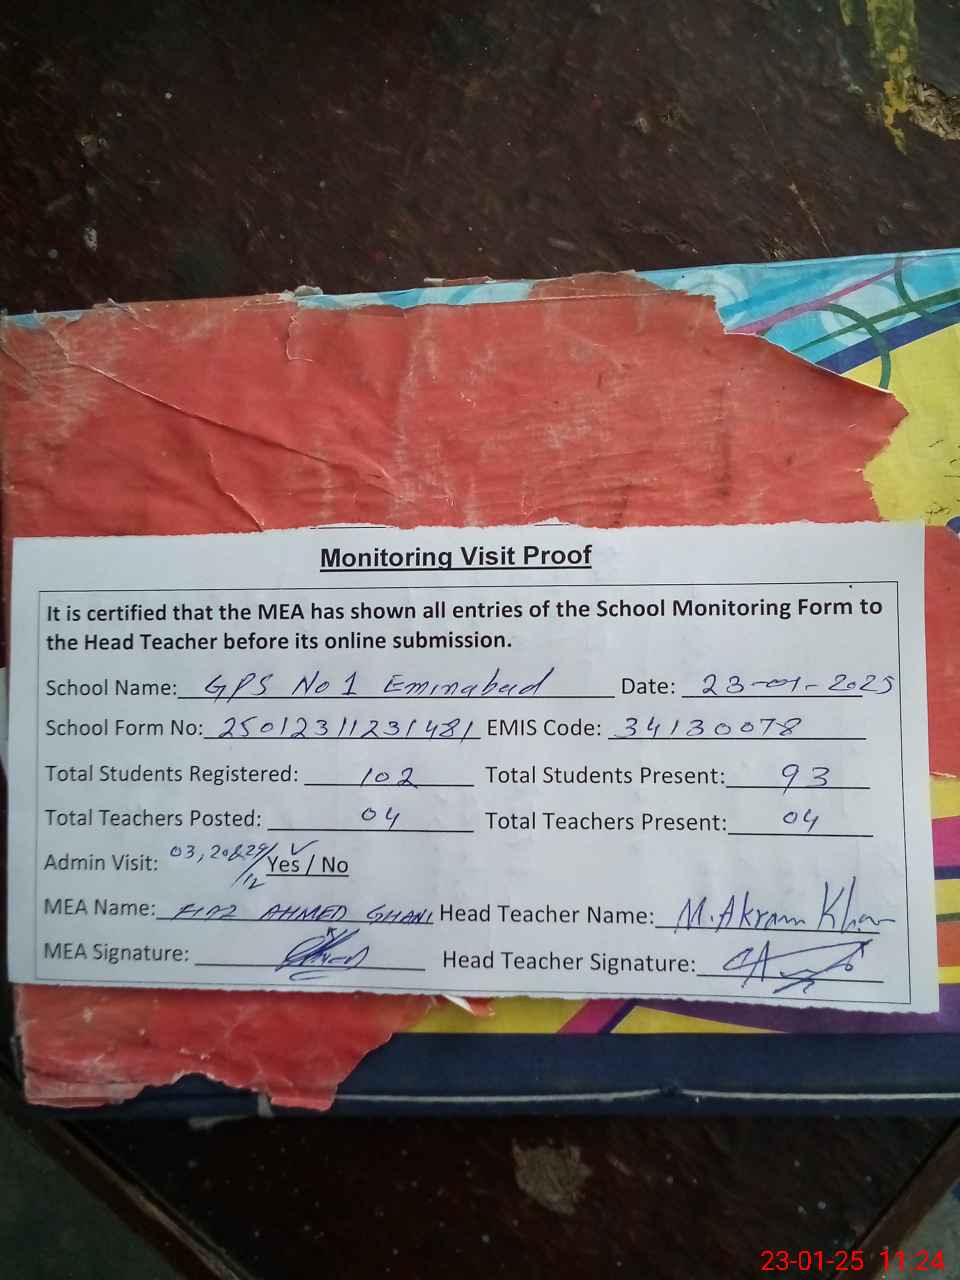 Monitoring Visit Proof
It is certified that the MEA has shown all entries of the School Monitoring Form to
the Head Teacher before its online submission.
School Name: GPS No 1 Eminabad Date: 23-01-2025
School Form No: 25012311231481 EMIS Code: 34130078
Total Students Registered: 102 Total Students Present: 93
Total Teachers Posted: 04 Total Teachers Present: 04
Admin Visit: 03, 20&29/12 Yes / No
MEA Name: AHMED GHANI Head Teacher Name: M. Akram Khan
MEA Signature: Head Teacher Signature:
23-01-25 11:24